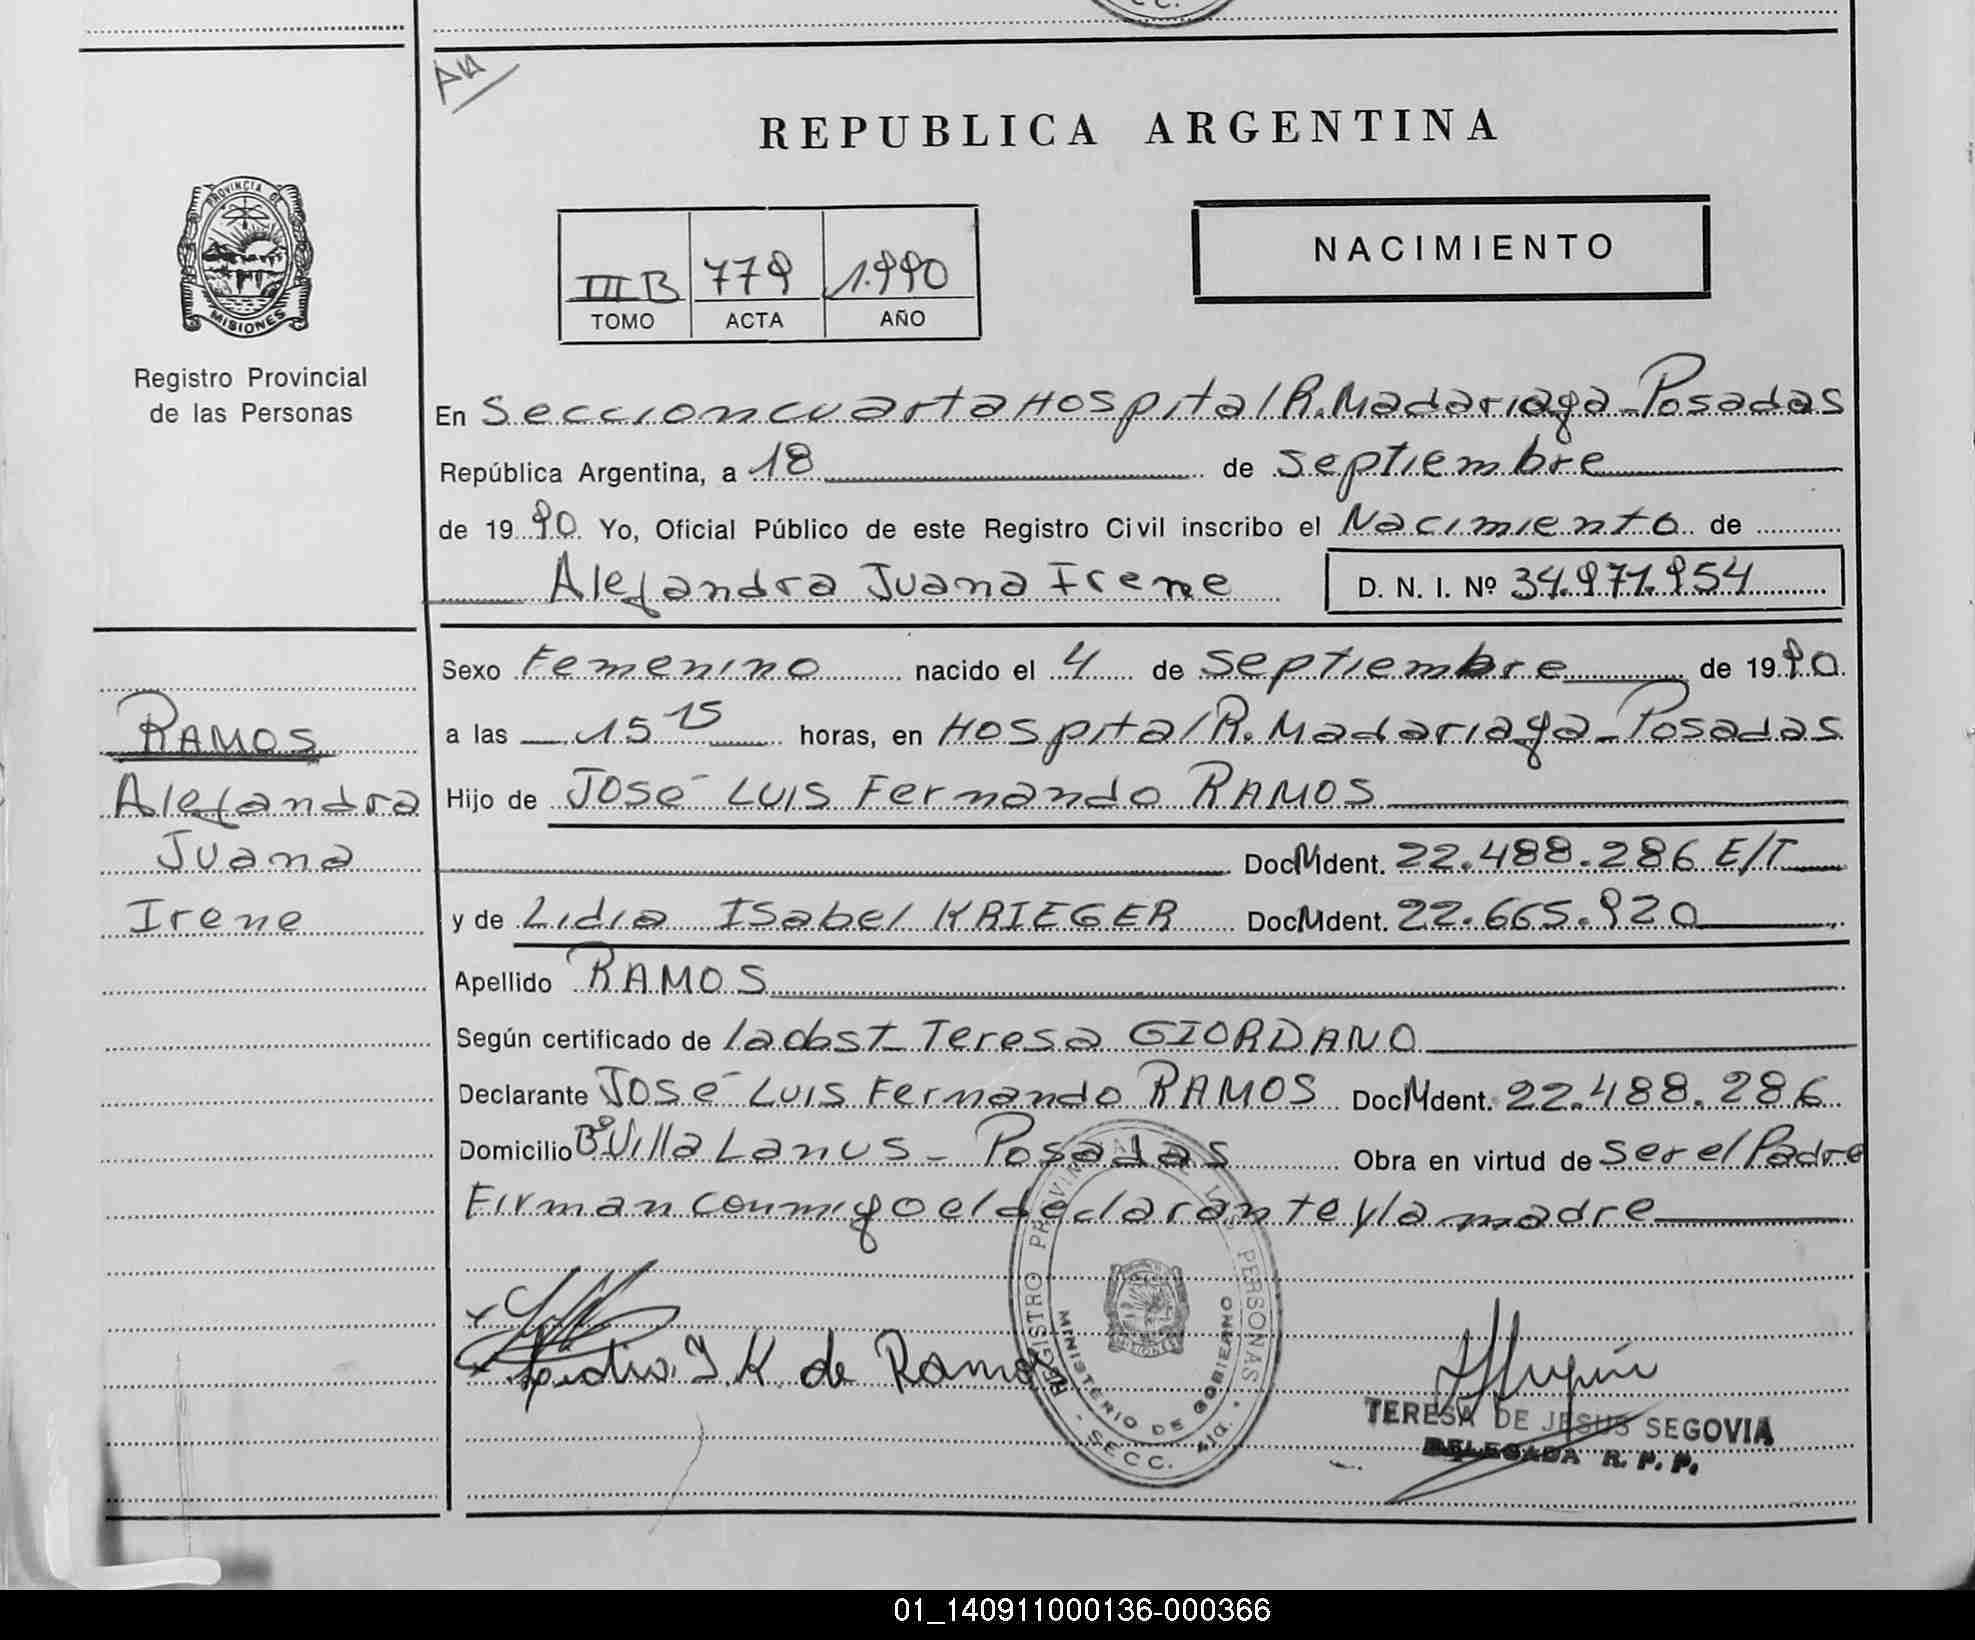 C C.
REPUBLICA ARGENTINA
PROVINCIA DE
MISIONES
Registro Provincial
de las Personas
III B 779 1.990
TOMO ACTA AÑO
NACIMIENTO
En Seccion cuarta Hospital R. Madariaga - Posadas
República Argentina, a 18 de septiembre
de 1990 Yo, Oficial Público de este Registro Civil inscribo el Nacimiento de
Alejandra Juana Irene D. N. I. Nº 34.971.954
Sexo Femenino nacido el 4 de septiembre de 1990
a las 15 15 horas, en Hospital R. Madariaga - Posadas
Hijo de José Luis Fernando RAMOS
Doc M Ident. 22.488.286 E/T
y de Lidia Isabel KRIEGER Doc M Ident. 22.665.920
Apellido RAMOS
Según certificado de la obst. Teresa GIORDANO
Declarante José Luis Fernando RAMOS Doc M Ident. 22.488.286
Domicilio Bº Villa Lanus - Posadas Obra en virtud de ser el Padre
Firman conmigo el declarante y la madre
RAMOS
Alejandra
Juana
Irene
I. K. de Ramos
REGISTRO PROVINCIAL DE LAS PERSONAS
MINISTERIO DE GOBIERNO
SECC. 4ta.
TERESA DE JESUS SEGOVIA
DELEGADA R. P. P.
01_140911000136-000366